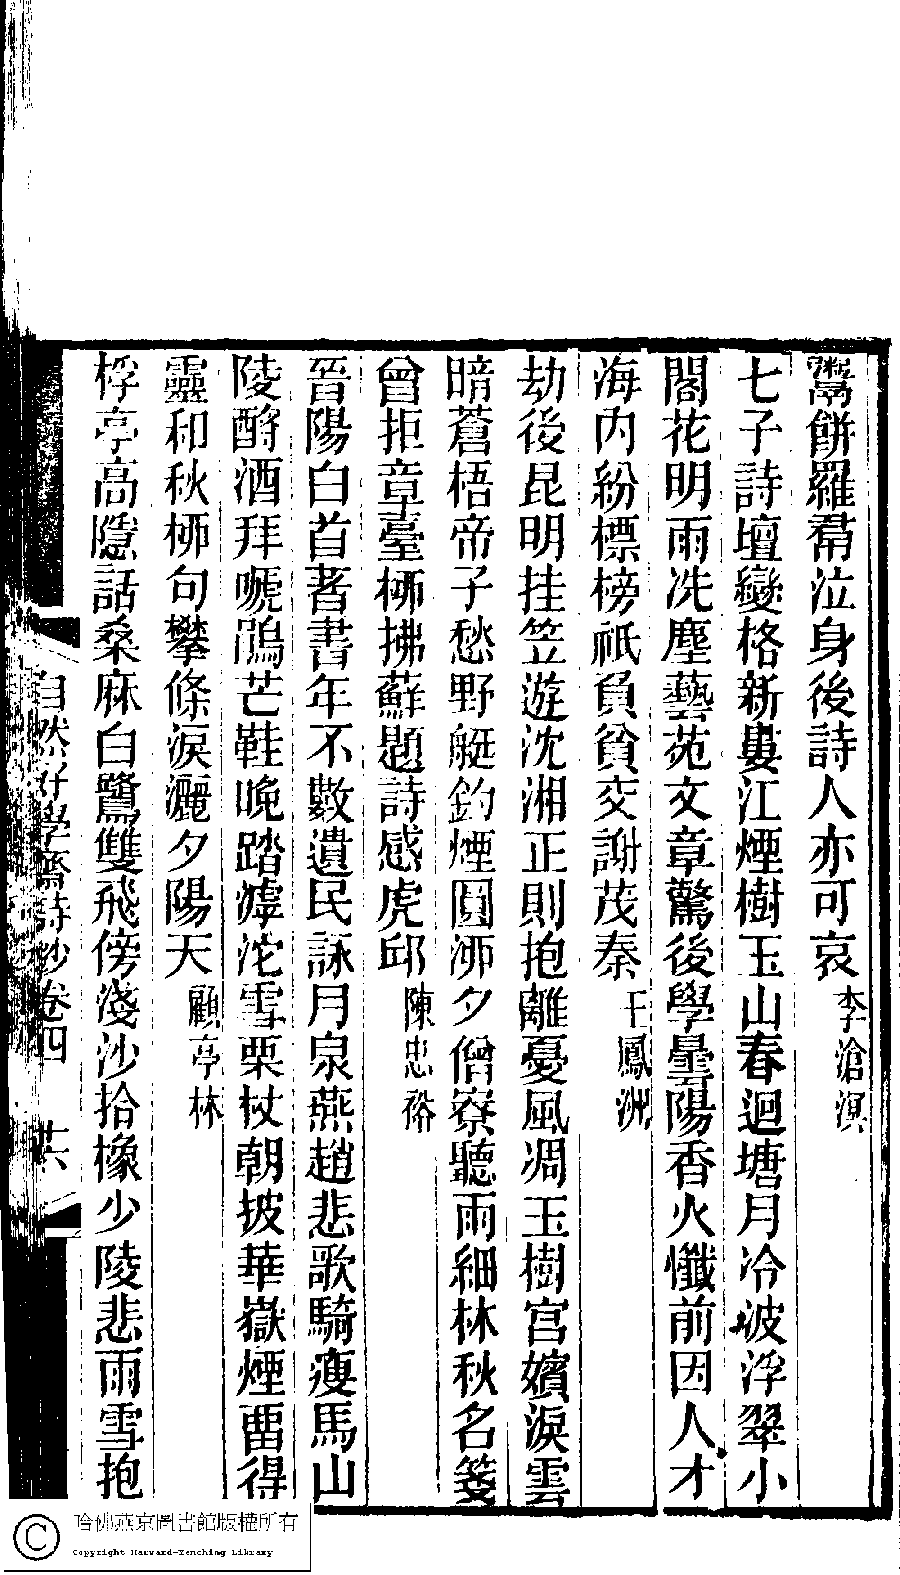 鬻餅羅幬泣身後詩人亦可哀李滄溟
七子詩壇變格新婁江煙樹玉山春迴塘月冷波浮翠小
閣花明雨洗塵藝苑文章驚後學曇陽香火懺前因人才
海内紛標榜祇負貧交謝茂秦王鳳洲
劫後昆明挂笠遊沈湘正則抱離憂風凋玉樹宮嬪淚雲
暗蒼梧帝子愁野艇釣煙圓泖夕僧寮聽雨細林秋名箋
曾拒章臺柳拂蘇題詩感虎邱陳忠裕
晉陽白首著書年不數遺民詠月泉燕趙悲歌騎瘦馬山
陵酹酒拜嗁鵑芒鞋晚踏滹沱雪栗杖朝披華嶽煙畱得
靈和秋柳句攀條淚灑夕陽天顧亭林
桴亭高隱話桑麻白鷺雙飛傍淺沙拾橡少陵悲雨雪抱
自然好學齋詩鈔卷四 廿六
哈佛燕京圖書館版權所有
Copyright Harvard-Yenching Library